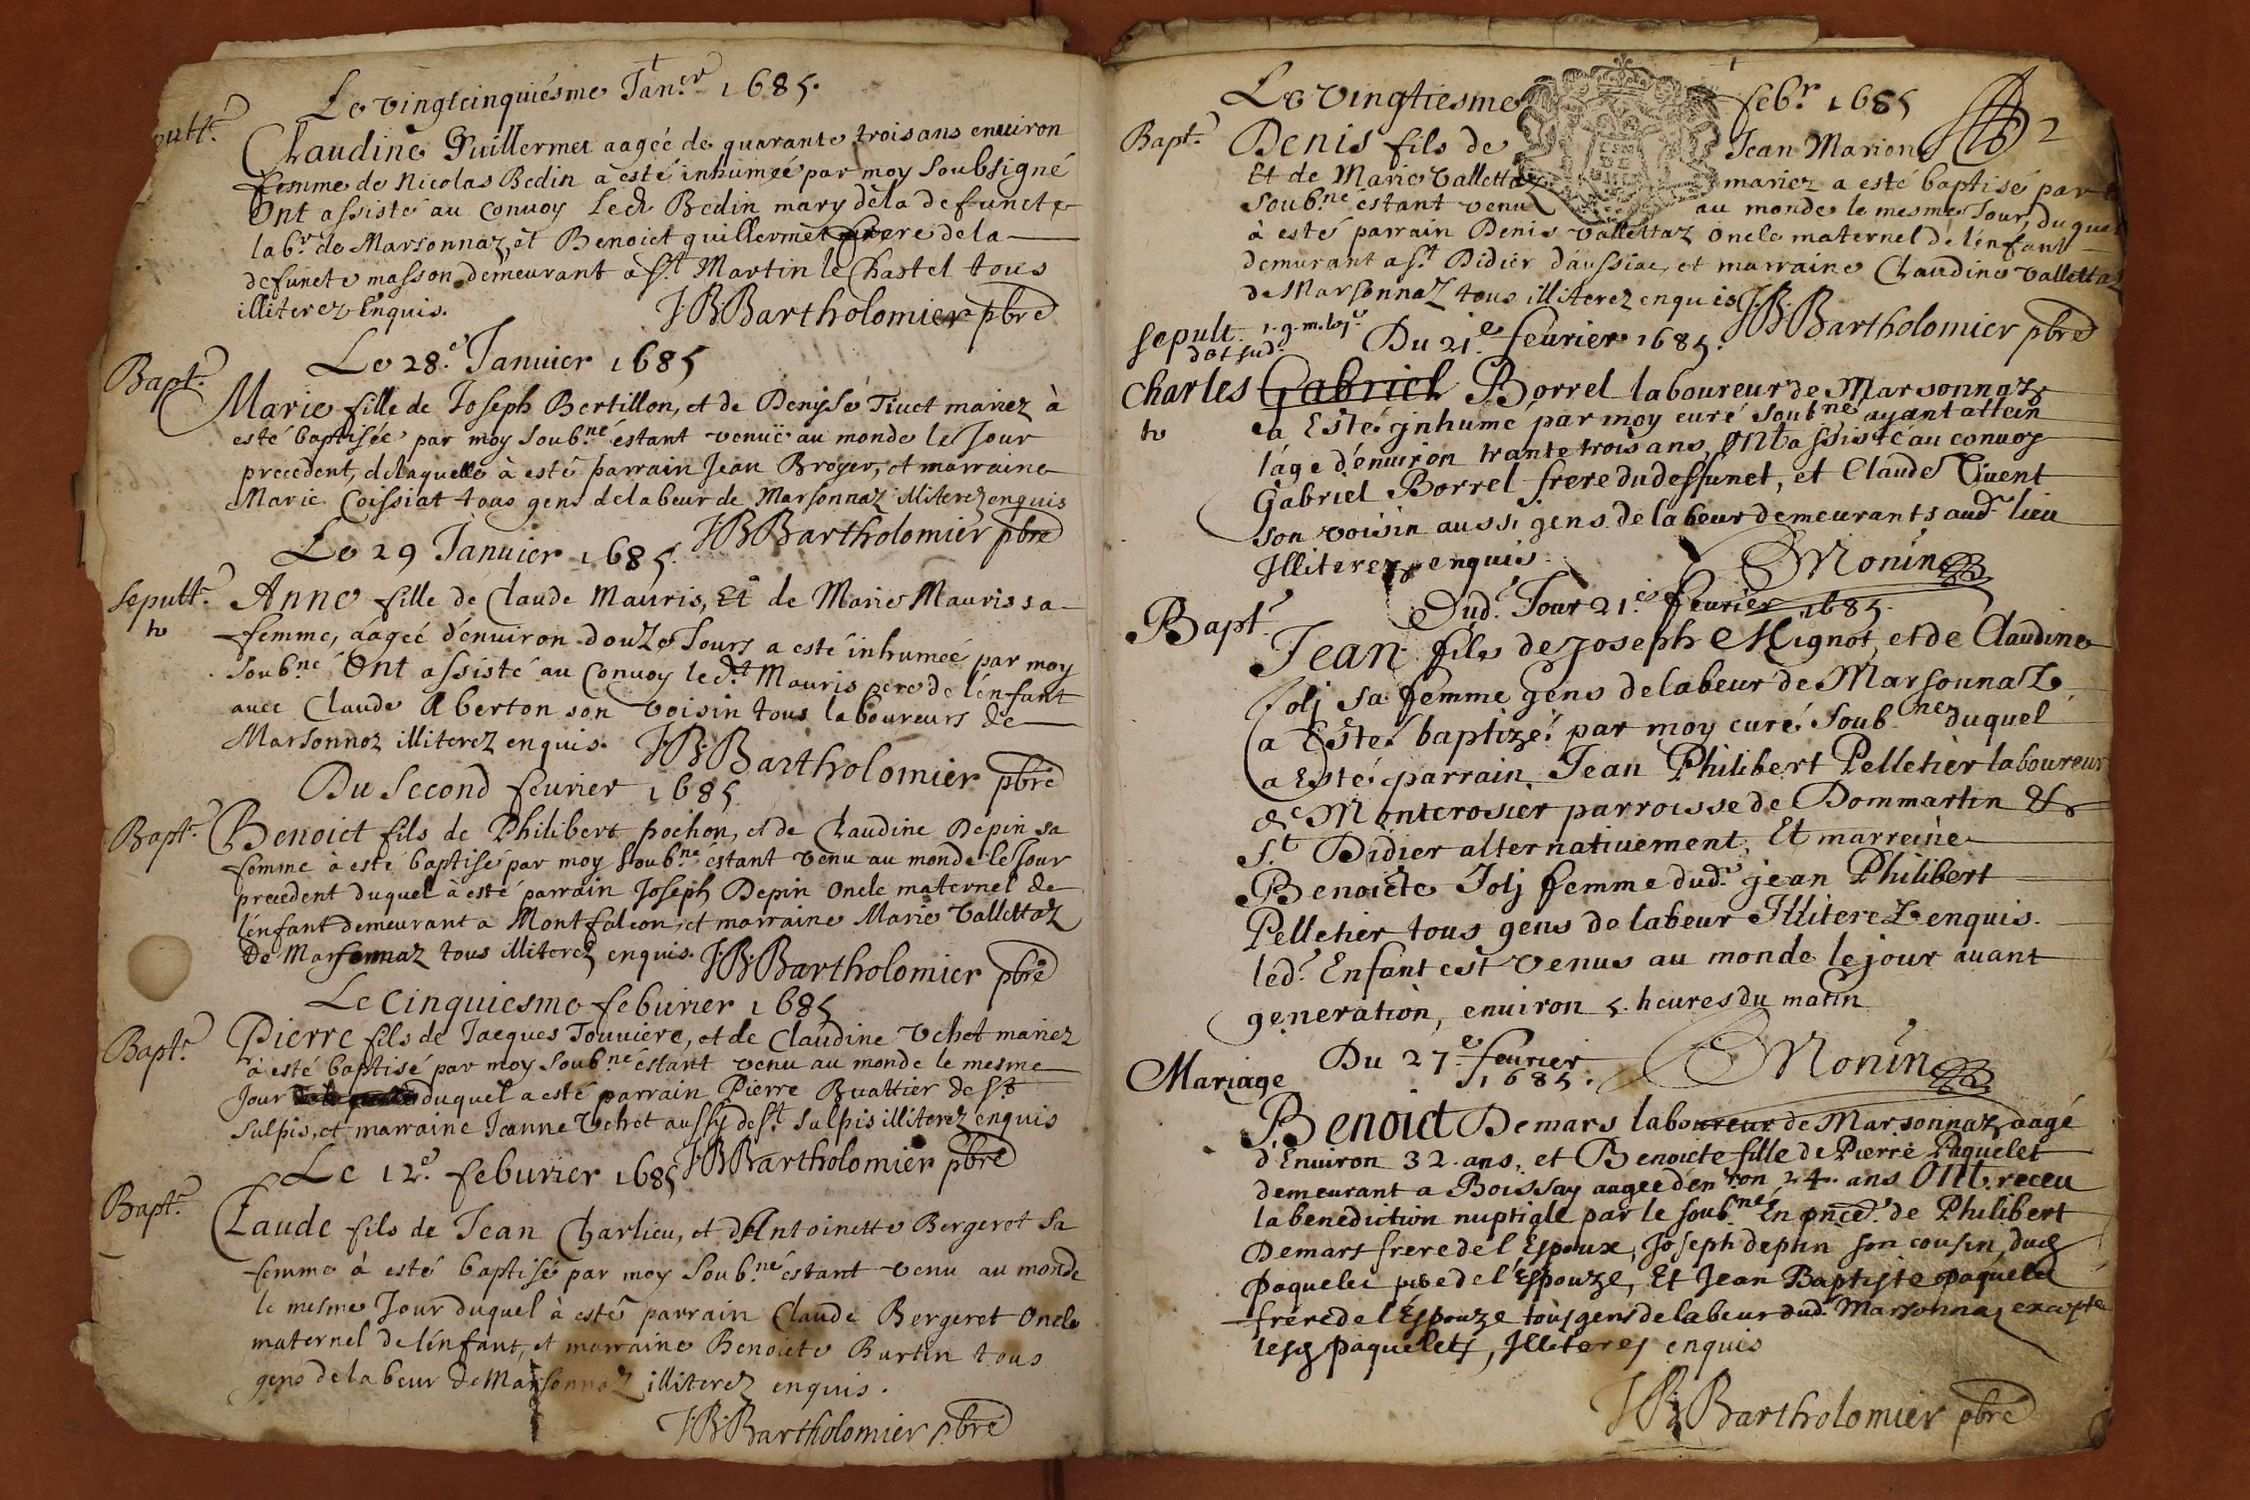 Le vingtcinquiésme Janer 1685.
Sepultre
Claudine Guillermet aagéé de quarante trois ans enuiron
femme de Nicolas Bedin à esté inhuméé par moy Soubsigné
Ont assisté au Conuoy Led Bedin mary dela defuncte
labr de Marsonnaz, et Benoict quillermet frere dela
defuncte masson demeurant a St Martin le Chastel tous
illiterez Enquis.
JBBartholomier pbre
Le 28e Januier 1685
Bapte
Marie fille de Joseph Bertillon, et de Denyse Tiuet mariez à
esté baptisée par moy Soubné éstant venuë au monde le Jour
precedent, delaquelle à esté parrain Jean Broyer, et marraine
Marie Coissiat tous gens delabeur de Marsonnaz illiterez enquis
JBBartholomier pbre
Le 29 Januier 1685.
Sepultre
Anne fille de Claude Mauris, Et de Marie Mauris sa
femme, aagéé d'enuiron douze Jours a esté inhuméé par moy
Soubné Ont assisté au Conuoy led.t Mauris pere de l'enfant
auec Claude Aberton son Voisin tous laboureurs de
Marsonnoz illiterez enquis.
J.B.Bartholomier pbre
Du Second feurier 1685
Bapte
Benoict fils de Philibert pochon, et de Claudine Depin sa
femme à esté baptisé par moy Soubné éstant venu au monde le Jour
precedent duquel à esté parrain Joseph Depin Oncle maternel de
l'énfant demeurant a Montfalcon, et marraine Marie Vallettaz
de Marsonnaz tous illiterez enquis.
J.B.Bartholomier pbre
Le Cinquiesme feburier 1685
Bapte
Pierre fils de Jacques Touuiere, et de Claudine Vchet mariez
à esté baptisé par moy Soubné éstant venu au monde le mesme
Jour duquel a esté parrain Pierre Buattier de St
Sulpis, et marraine Jeanne Vchet aussy de St Sulpis illiterez enquis
JBBartholomier pbre
Le 12e feburier 1685
Bapte
Claude fils de Jean Charlieu, et d'Antoinette Bergeret Sa
femme à esté baptisé par moy Soubné éstant venu au monde
le mesme Jour duquel à esté parrain Claude Bergeret Oncle
maternel de l'énfant, et marraine Benoicte Burtin tous
gens delabeur de Marsonnaz illiterez enquis.
J.B.Bartholomier pbre
Le vingtiesme febr 1685
2
Bapte
Denis fils de Jean Marion
Et de Marie Vallettaz mariez a esté baptisé par
Soubné estant venu au monde le mesme Jour, duquel
à esté parrain Denis Vallettaz Oncle maternel de l'énfant
demurant a St Didier d'aussiac, et marraine Claudine Vallettaz
de Marsonnaz tous illiterez enquis
J.B.Bartholomier pbre
Sepult.
Du 21e feurier 1685.
Charles Gabriel Borrel laboureur de Marsonnaz
a Esté jnhumé par moy curé Soubné ayant attein
l'áge d'énuiron trante trois ans, Ont assisté au conuoy
Gabriel Borrel frere du deffunct, et Claude Tiuent
son voisin aussi gens de labeur demeurants aud. lieu
Jlliterez enquis.
Monin
Dud. Jour 21e feurier 1685.
Bapt.
Jean fils de Joseph Mignot, et de Claudine
Jolj sa femme gens delabeur de Marsonnaz
a Esté baptizé par moy curé Soubne duquel
a Esté parrain Jean Philibert Pelletier laboureur
de Montcrosier parroisse de Dommartin &
St Didier alternatiuement, Et marreine
Benoicte Jolj femme dud. jean Philibert
Pelletier tous gens de labeur Jlliterez enquis.
led. Enfant est venus au monde le jour auant
generation, enuiron 5. heures du matin
Monin
Mariage
Du 27e feurier
1685.
Benoict Demars laboureur de Marsonnaz aagé
d'Enuiron 32. ans, et Benoicte fille de Pierre Paquelet
demeurant a Boissay aagee d'enron 24. ans Ont receu
la benediction nuptialle par le Soubné En pnce de Philibert
Demars frere de l'Espoux, Joseph depin son cousin, dud
paquelet pere de l'Espouze, Et Jean Baptiste paquelet
frére de l'Espouze tous gens de labeur dud. Marsonnaz excepte
lesd paquelets, Jlliterez enquis
JBBartholomier pbre